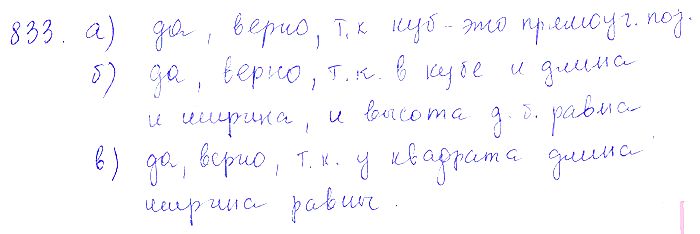 833. а) да, верно, т.к куб - это прямоуг. поз.
б) да, верно, т.к. в кубе и длина
и ширина, и высота д.б. равна
в) да, верно, т.к. у квадрата длина
ширина равны.